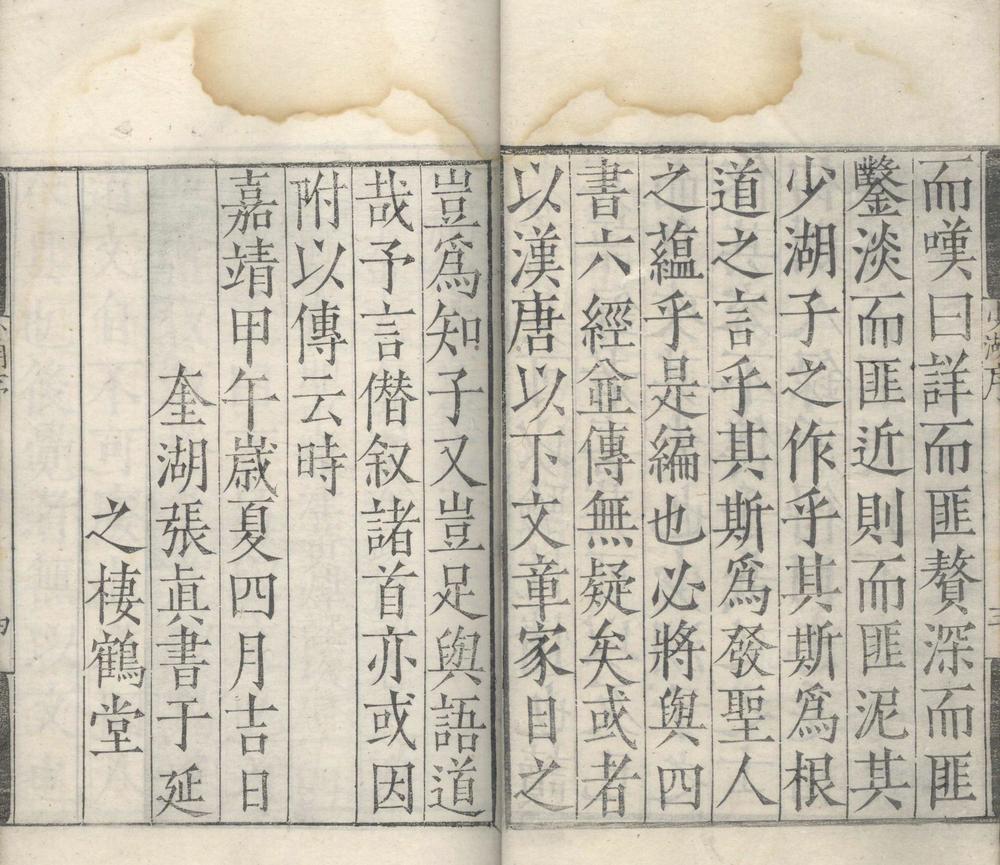 而嘆曰詳而匪贅深而匪
鑿淡而匪近則而匪泥其
少湖子之作乎其斯爲根
道之言乎其斯爲發聖人
之蘊乎是編也必將與四
書六經並傳無疑矣或者
以漢唐以下文章家目之
豈爲知子又豈足與語道
哉予言僭叙諸首亦或因
附以傳云時
嘉靖甲午歲夏四月吉日
奎湖張眞書于延
之棲鶴堂